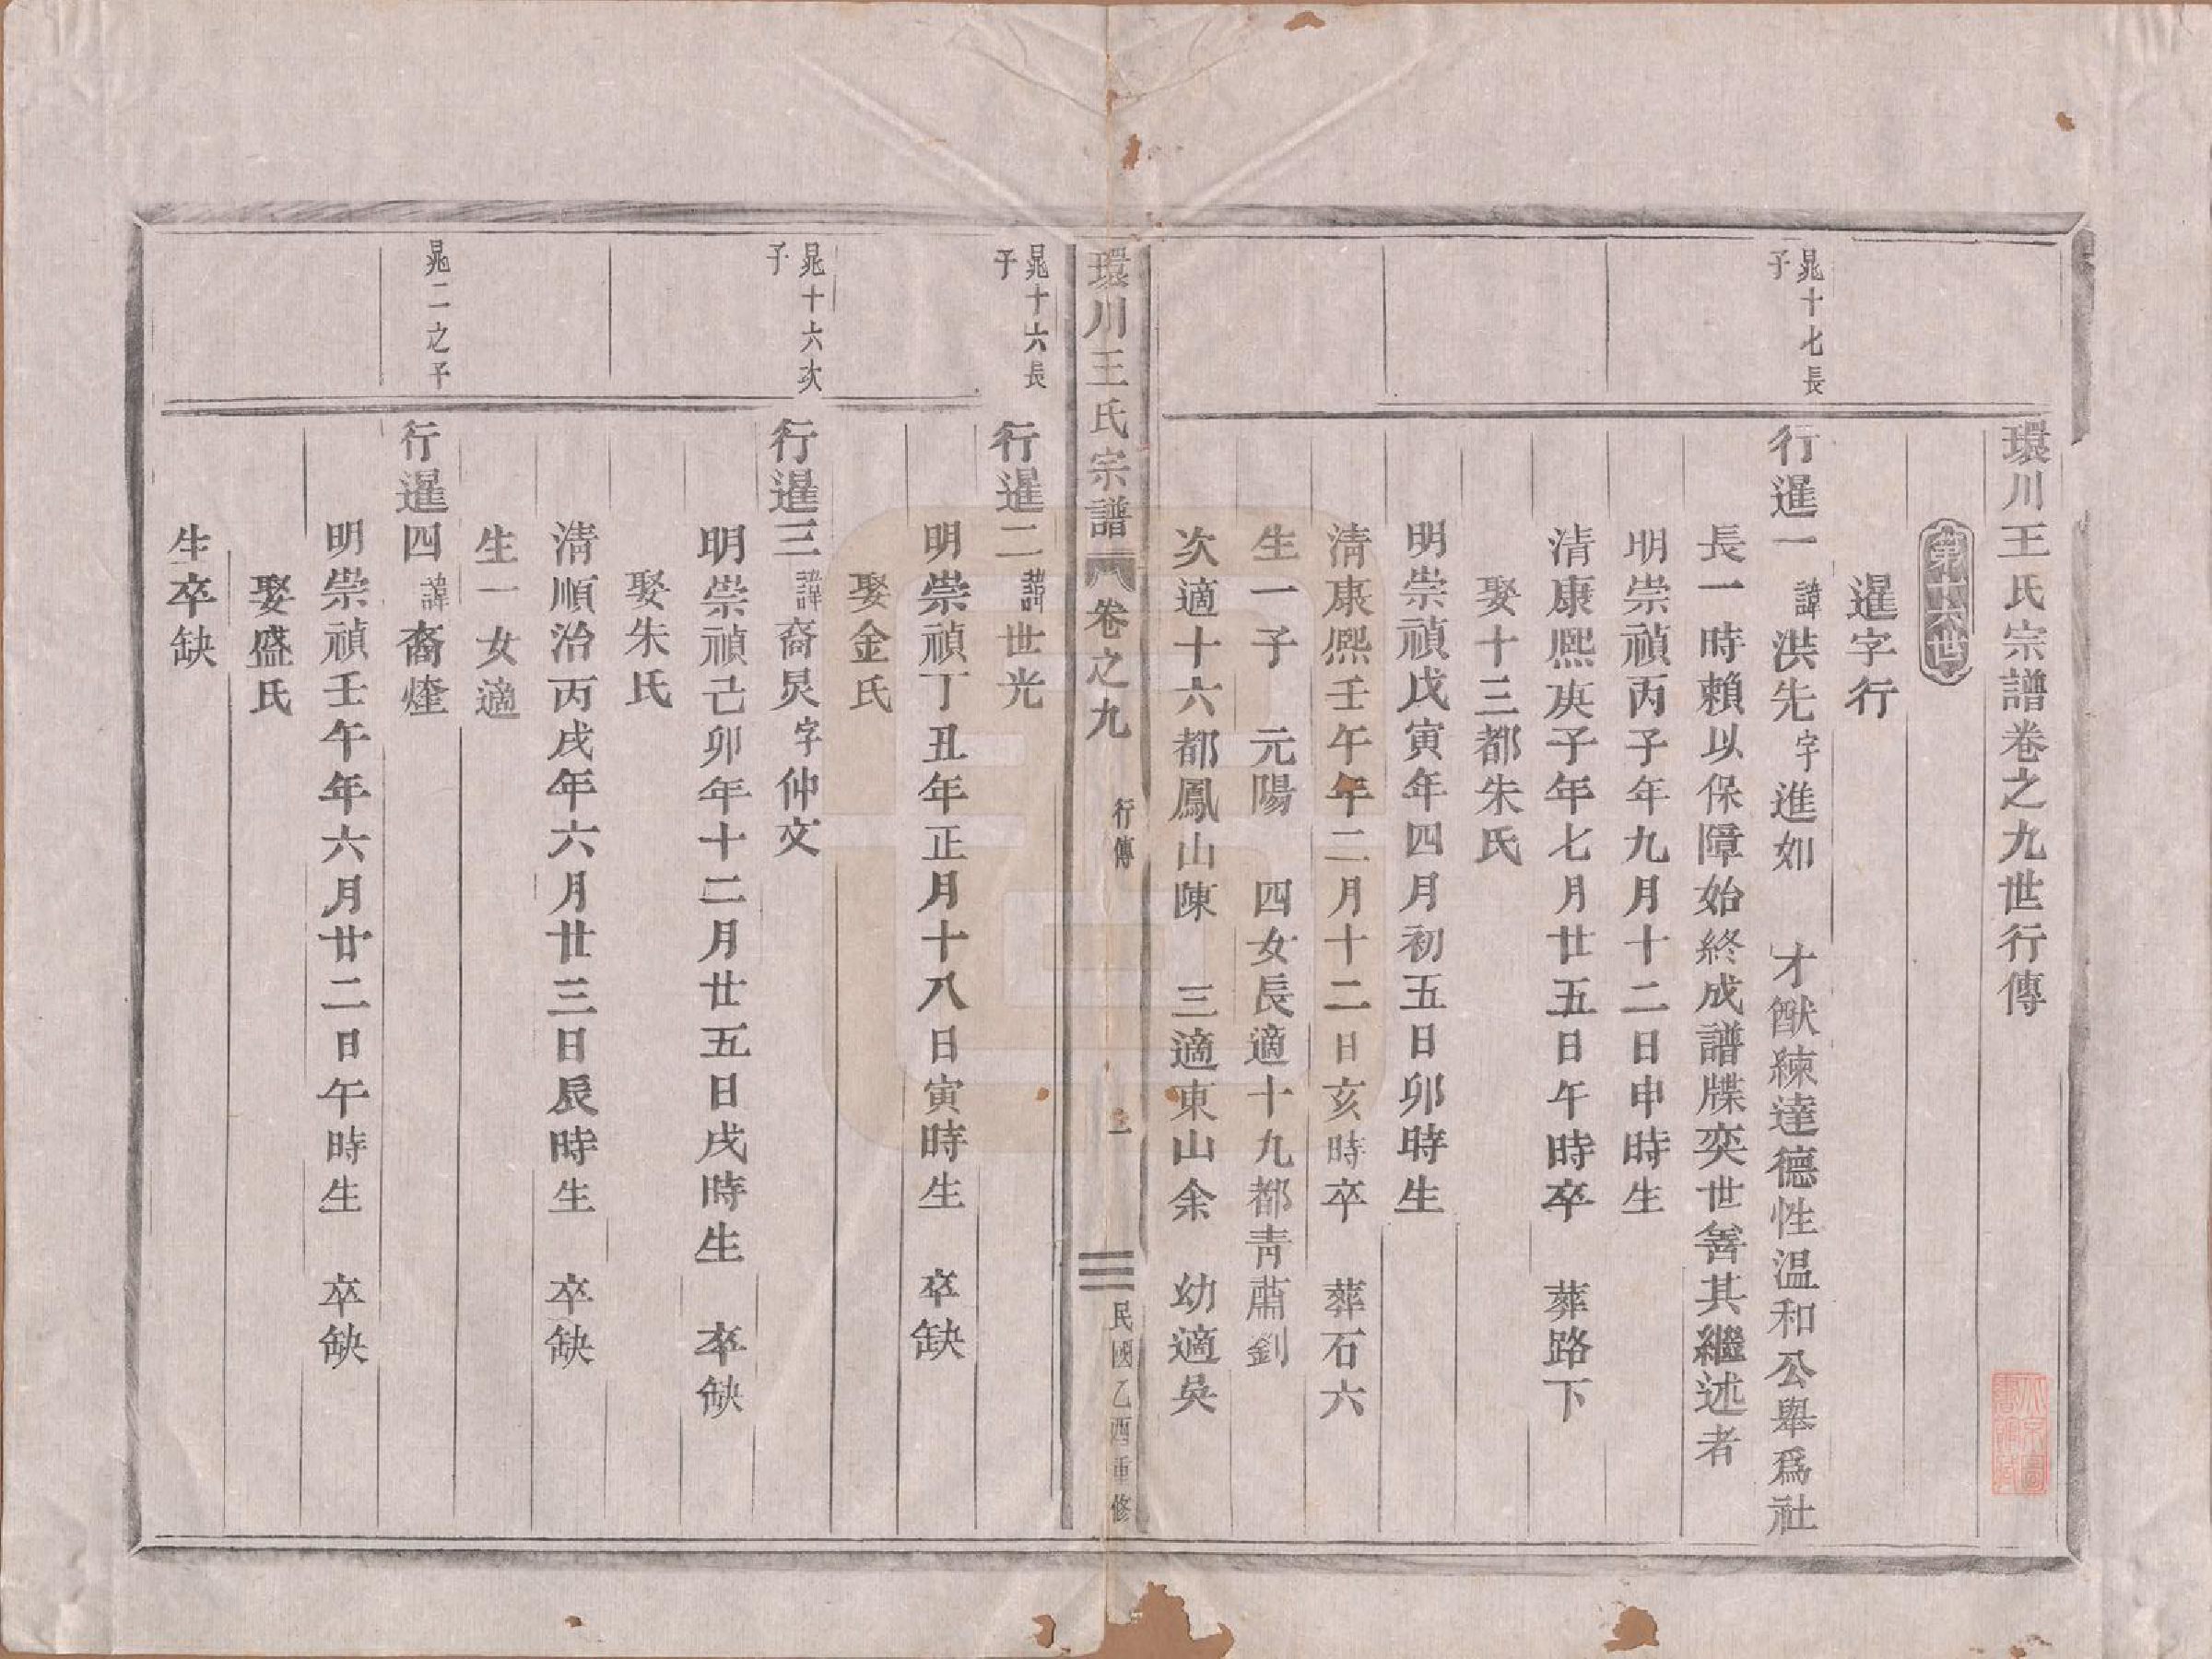 環川王氏宗譜卷之九世行傳
第十六世
暹字行
晁十七長子
行暹一 諱洪先字進如 才猷練達德性溫和公舉爲社
長一時賴以保障始終成譜牒奕世善其繼述者
明崇禎丙子年九月十二日申時生
清康熙庚子年七月廿五日午時卒 葬路下
娶十三都朱氏
明崇禎戊寅年四月初五日卯時生
清康熙壬午年二月十二日亥時卒 葬石六
生一子 元陽 四女長適十九都青蕭劉
次適十六都鳳山陳 三適東山余 幼適吳
環川王氏宗譜 卷之九 行傳 一 民國乙酉重修
晁十六長子
行暹二 諱世光
明崇禎丁丑年正月十八日寅時生 卒缺
娶金氏
晁十六次子
行暹三 諱裔炅字仲文
明崇禎己卯年十二月廿五日戌時生 卒缺
娶朱氏
清順治丙戌年六月廿三日辰時生 卒缺
生一女適
晁二之子
行暹四 諱裔煃
明崇禎壬午年六月廿二日午時生 卒缺
娶盛氏
生卒缺